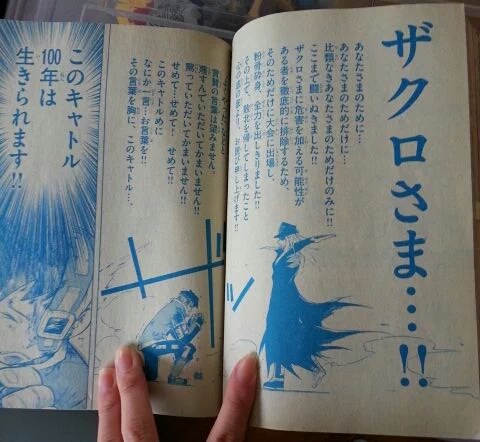 ザクロさま…!!
あなたさまのために…
あなたさまのためだけに…
比類なきあなたさまのためだけのみに!!
ここまで闘いぬきました!!
ザクロさまに危害を加える可能性が
ある者を徹底的に排除するため、
そのためだけに大会に出場し、
粉骨砕身、全力を出しきりました!!
その上で、敗北を喫してしまったこと
お詫び申し上げます!!
の言葉は望みません。
蔑すんでいただいてかまいません!!
罵っていただいてかまいません!!
せめて…せめて!! せめて!!
このキャトルめに
なにか一言…お言葉を!!
その言葉を胸に、このキャトル…、
このキャトル
100年は
生きられます!!